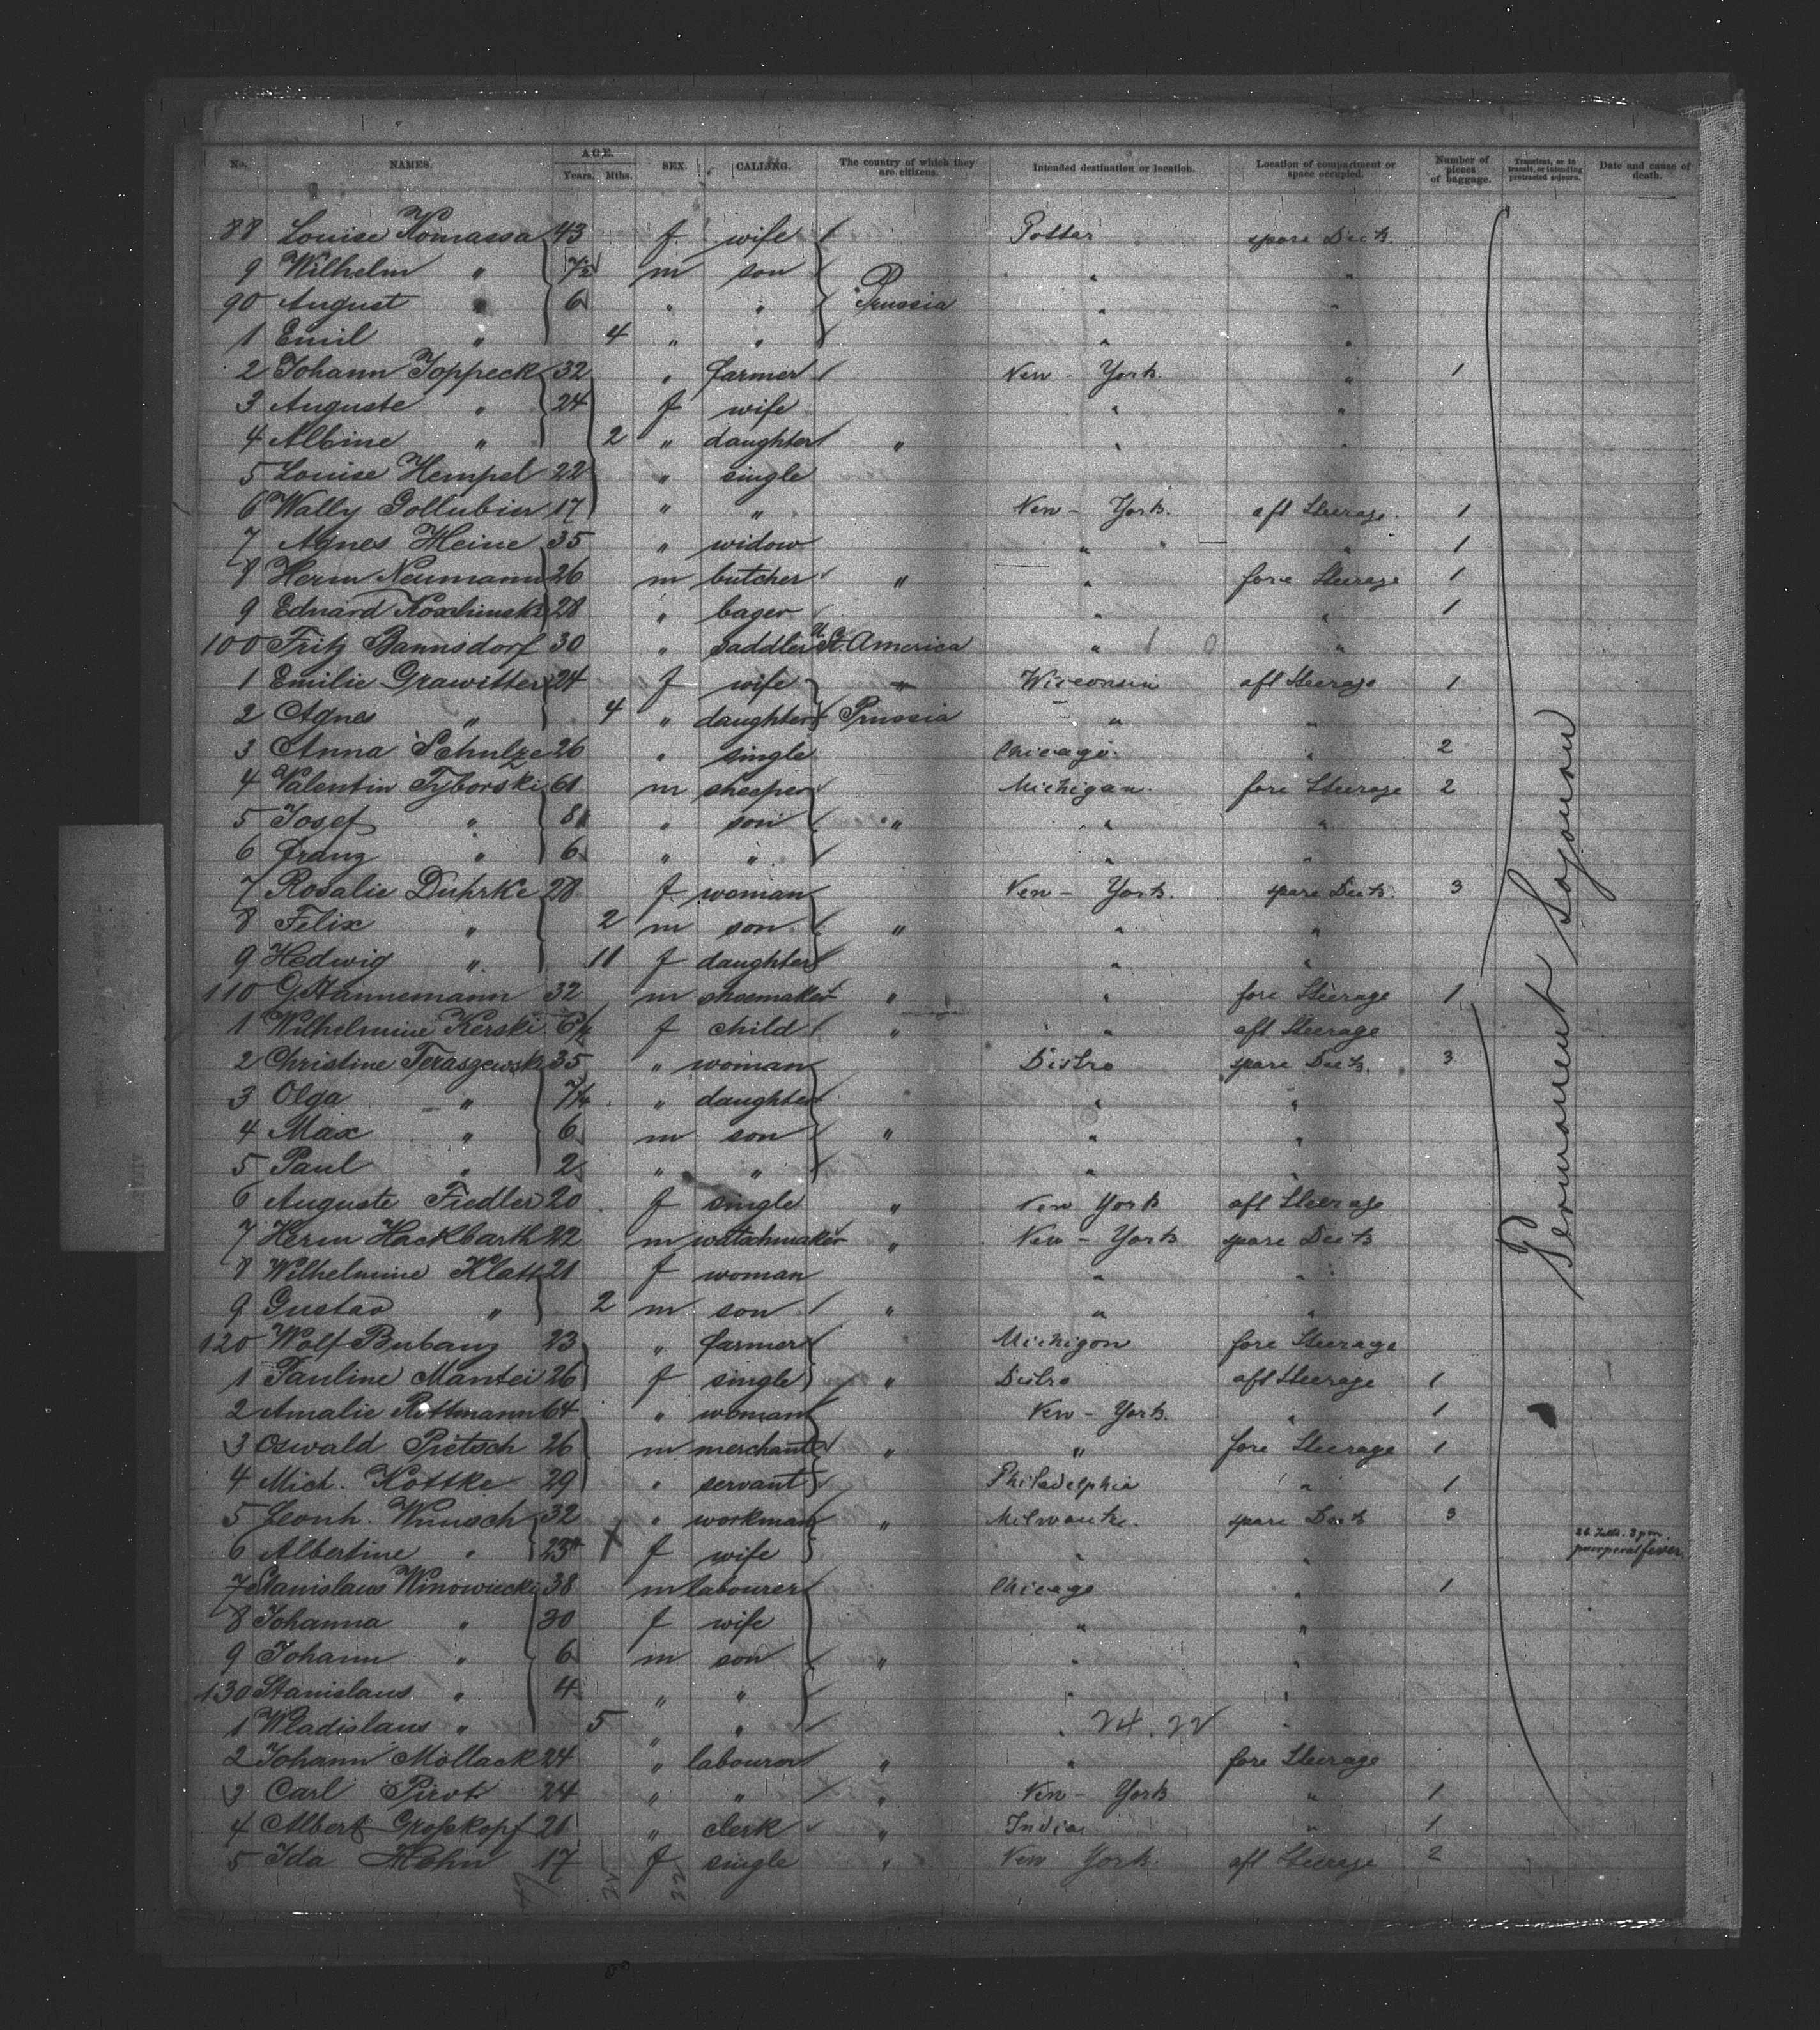 No. NAMES. AGE. Years. Mths. SEX. CALLING. The country of which they are citizens. Intended destination or location. Location of compartment or space occupied. Number of pieces of baggage. Transient, or in transit, or intending protracted sojourn. Date and cause of death.
88 Louise Komassa 43 f wife Potter spare Deck.
9 Wilhelm " 7½ m son " "
90 August " 6 " " Prussia " "
1 Emil " 4 " " " "
2 Johann Joppeck 32 " farmer New-York. " 1
3 Auguste " 24 f wife " "
4 Albine " 2 " daughter " " "
5 Louise Hempel 22 " single
6 Wally Gollubier 17 " " New-York. aft Steerage. 1
7 Agnes Heine 35 " widow " " 1
8 Herm Neumann 26 m butcher " " fore Steerage 1
9 Eduard Koschinski 28 " bager " " 1
100 Fritz Bannsdorf 30 " saddler U. St. America " "
1 Emilie Grawitter 24 f wife " Wisconsin aft Steerage 1
2 Agnes " 4 " daughter Prussia " "
3 Anna Schulze 26 " single Chicago. " 2
4 Valentin Tyborski 61 m sheeper Michigan. fore Steerage 2
5 Josef " 8 " son " " "
6 Franz " 6 " " " "
7 Rosalie Duhrke 28 f woman New-York. spare Deck. 3
8 Felix " 2 m son " " "
9 Hedwig " 11 f daughter " "
110 G. Hannemann 32 m shoemaker " " fore Steerage 1
1 Wilhelmine Kerski 6½ f child " " aft Steerage
2 Christine Teraszewski 35 " woman Distro spare Deck. 3
3 Olga " 7¼ " daughter " "
4 Max " 6 m son " " "
5 Paul " 2 " " " "
6 Auguste Fiedler 20 f single " New York aft Steerage
7 Herm Hackbarth 22 m watchmaker " New-York spare Deck
8 Wilhelmine Klatt 21 f woman " "
9 Gustav " 2 m son " " "
120 Wolf Bubanz 23 " farmer Michigan fore Steerage
1 Pauline Mantei 26 f single " Distro aft Steerage 1
2 Amalie Rottmann 64 " woman New-York. " 1
3 Oswald Pietsch 26 m merchant " " fore Steerage 1
4 Mich. Kottke 29 " servant Philadelphia " 1
5 Leonh. Wunsch 32 " workman " Milwauke. spare Deck 3
6 Albertine " 23 X f wife " " 3 pm. puerperal fever
7 Stanislaus Winowiecki 38 m labourer Chicago " 1
8 Johanna " 30 f wife " "
9 Johann " 6 m son " " "
130 Stanislaus " 4 " " " "
1 Wladislaus " 5 " " " 24.22 "
2 Johann Mollack 24 " labourer " " fore Steerage
3 Carl Pirot 24 " " " New-York " 1
4 Albert Großkopf 21 " clerk " India " 1
5 Ida Hohn 17 f single " New York. aft Steerage 2
Permanent Sojourn